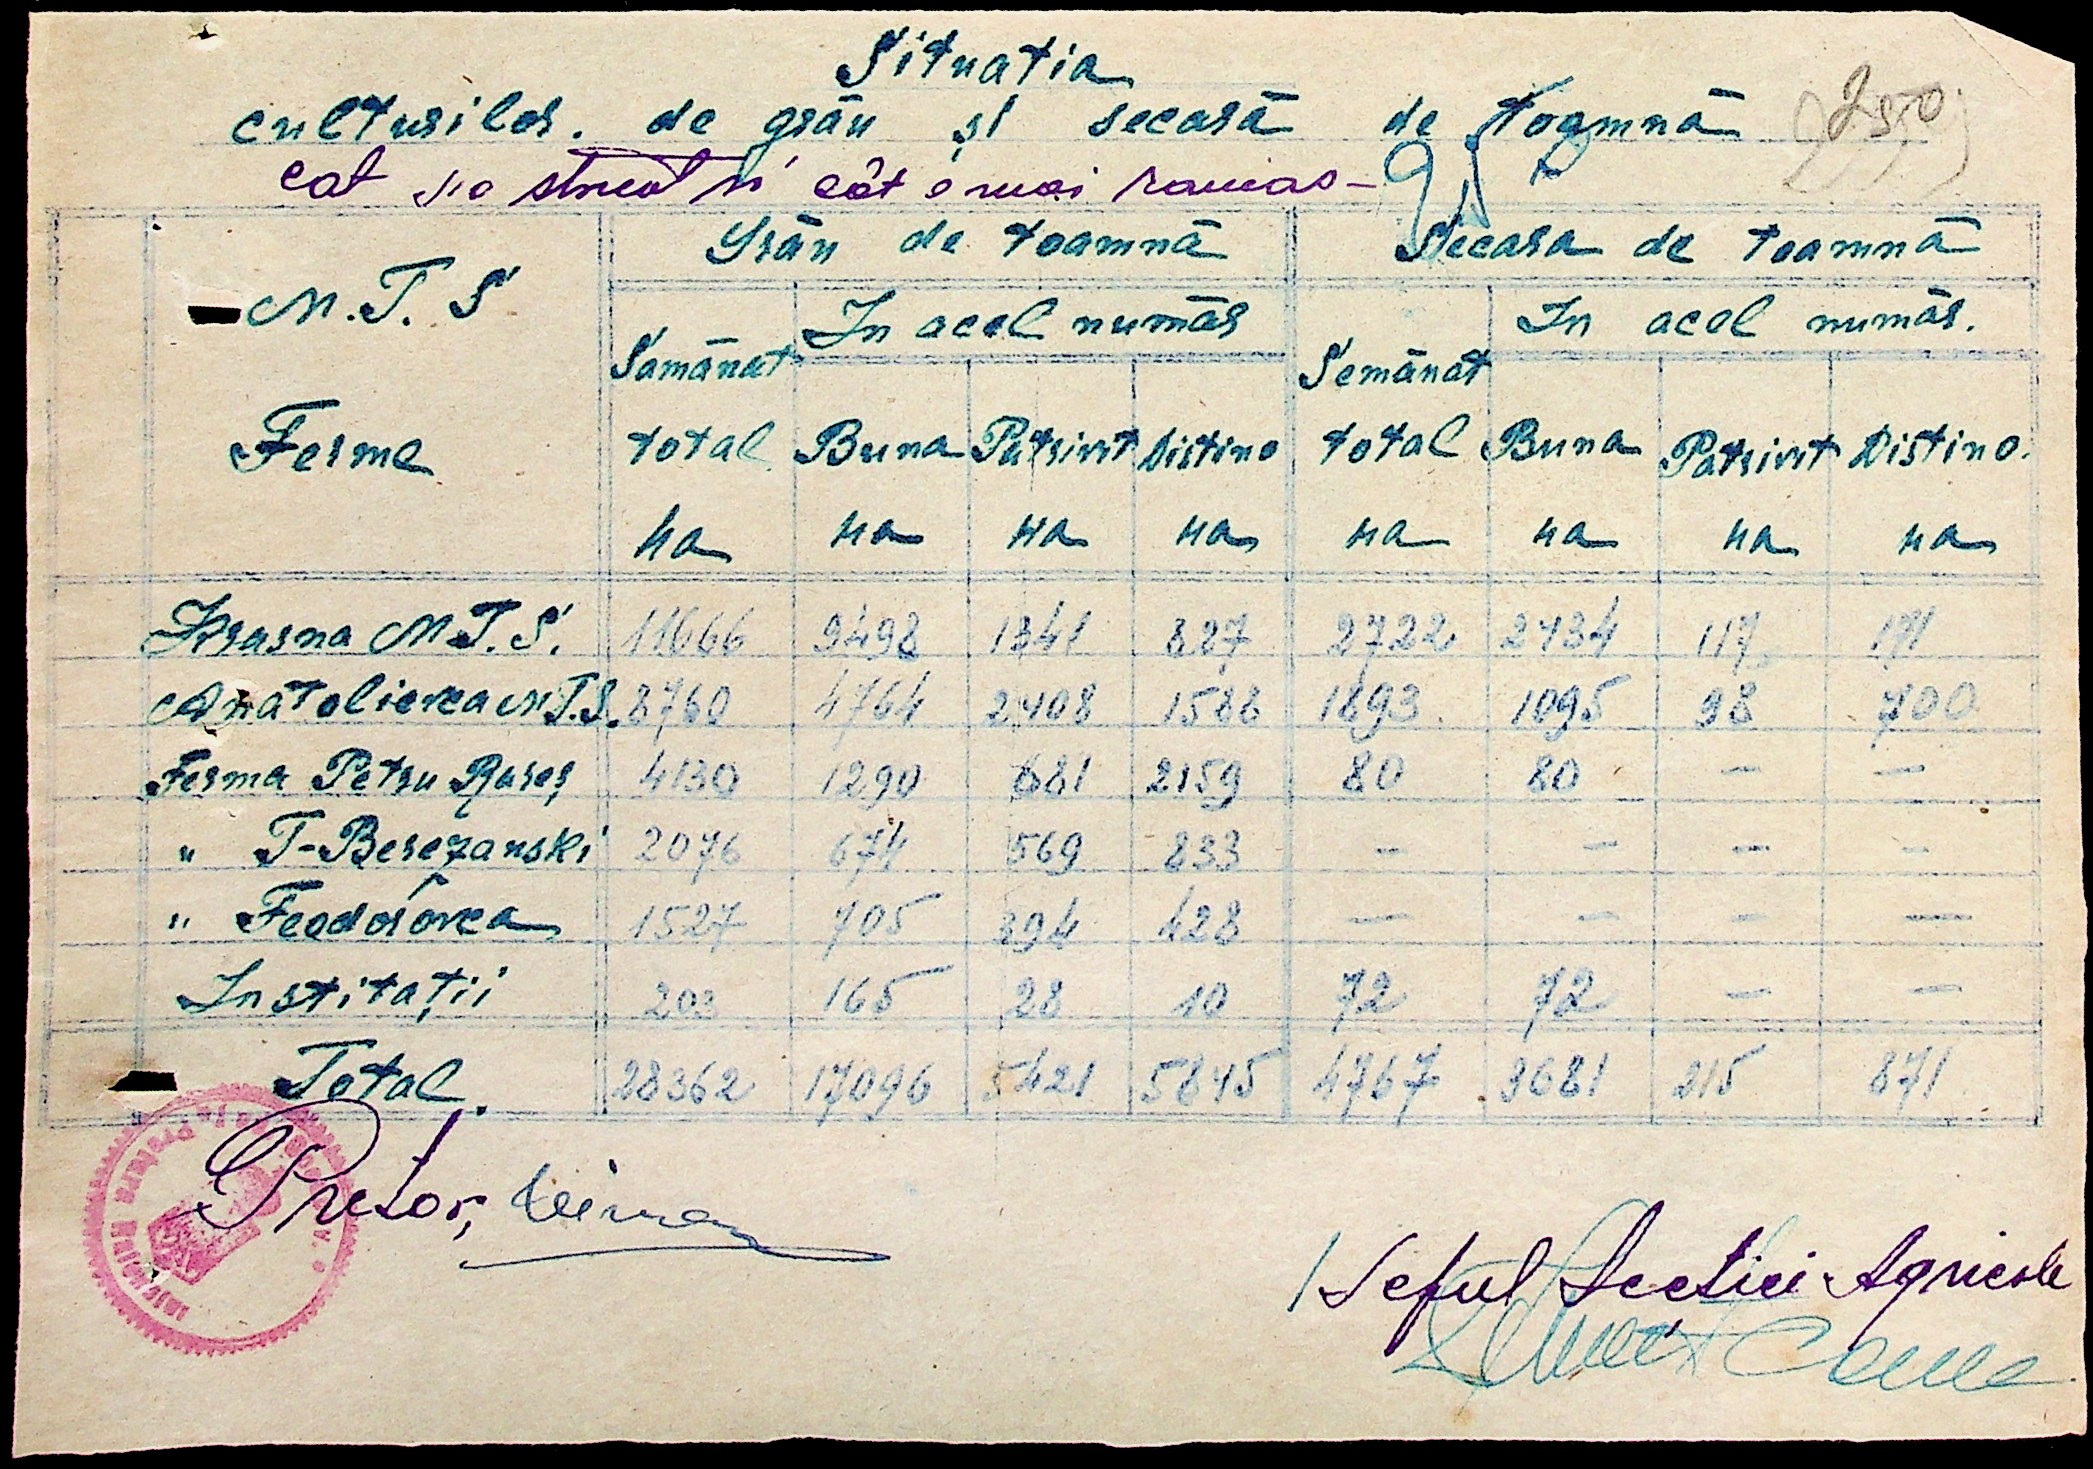 Situatia
culturilor. de grân și secară de toamnă
250
cat s'a stricat si cât a mai ramas -
M.T.S
Ferme
Grân de toamnă Secara de toamnă
In acel număr In acel număr.
Samănat total ha Buna ha Potrivit ha Distino ha Semănat total ha Buna ha Potrivit ha Distino. ha
Krasna M.T.S. 11666 9498 1341 827 2722 2434 117 171
Anatolievca M.T.S. 8760 4764 2408 1588 1893 1095 98 700
Ferma Petru Rareș 4130 1290 681 2159 80 80 — —
" T-Berezanski 2076 674 569 833 - — — -
" Feodorovca 1527 705 394 428 — — — —
Instituții 203 165 28 10 72 72 — —
Total. 28362 17096 5421 5845 4767 3681 215 871
Pretor,
/ Seful Sectiei Agricole